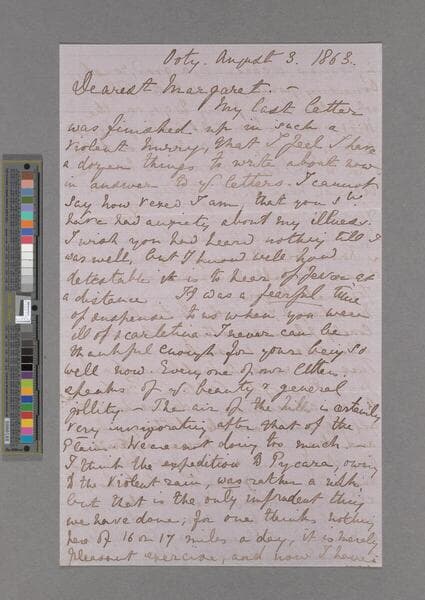 Ooty. August 3. 1863.
Dearest Margaret. –
My last letter
was finished up in such a
violent hurry, that I feel I have
a dozen things to write about now
in answer to yr letters. I cannot
say how vexed I am, that you shd
have had anxiety about my illness.
I wish you had heard nothing till I
was well, but I know well how
detestable it is to hear of fever at
a distance. It was a fearful time
of suspense to us when you were
ill of scarletina. I never can be
thankful enough for your being so
well now. Every one of our letters
speaks of yr beauty & general
jollity – The air of the hills is certainly
very invigorating after that of the
Plains. We are not doing too much –
I think the expedition to Pycara, owing
to the violent rain, was rather a risk
but that is the only imprudent thing
we have done; for one thinks nothing
here of 16 or 17 miles a day, it is merely
pleasant exercise, and now I have